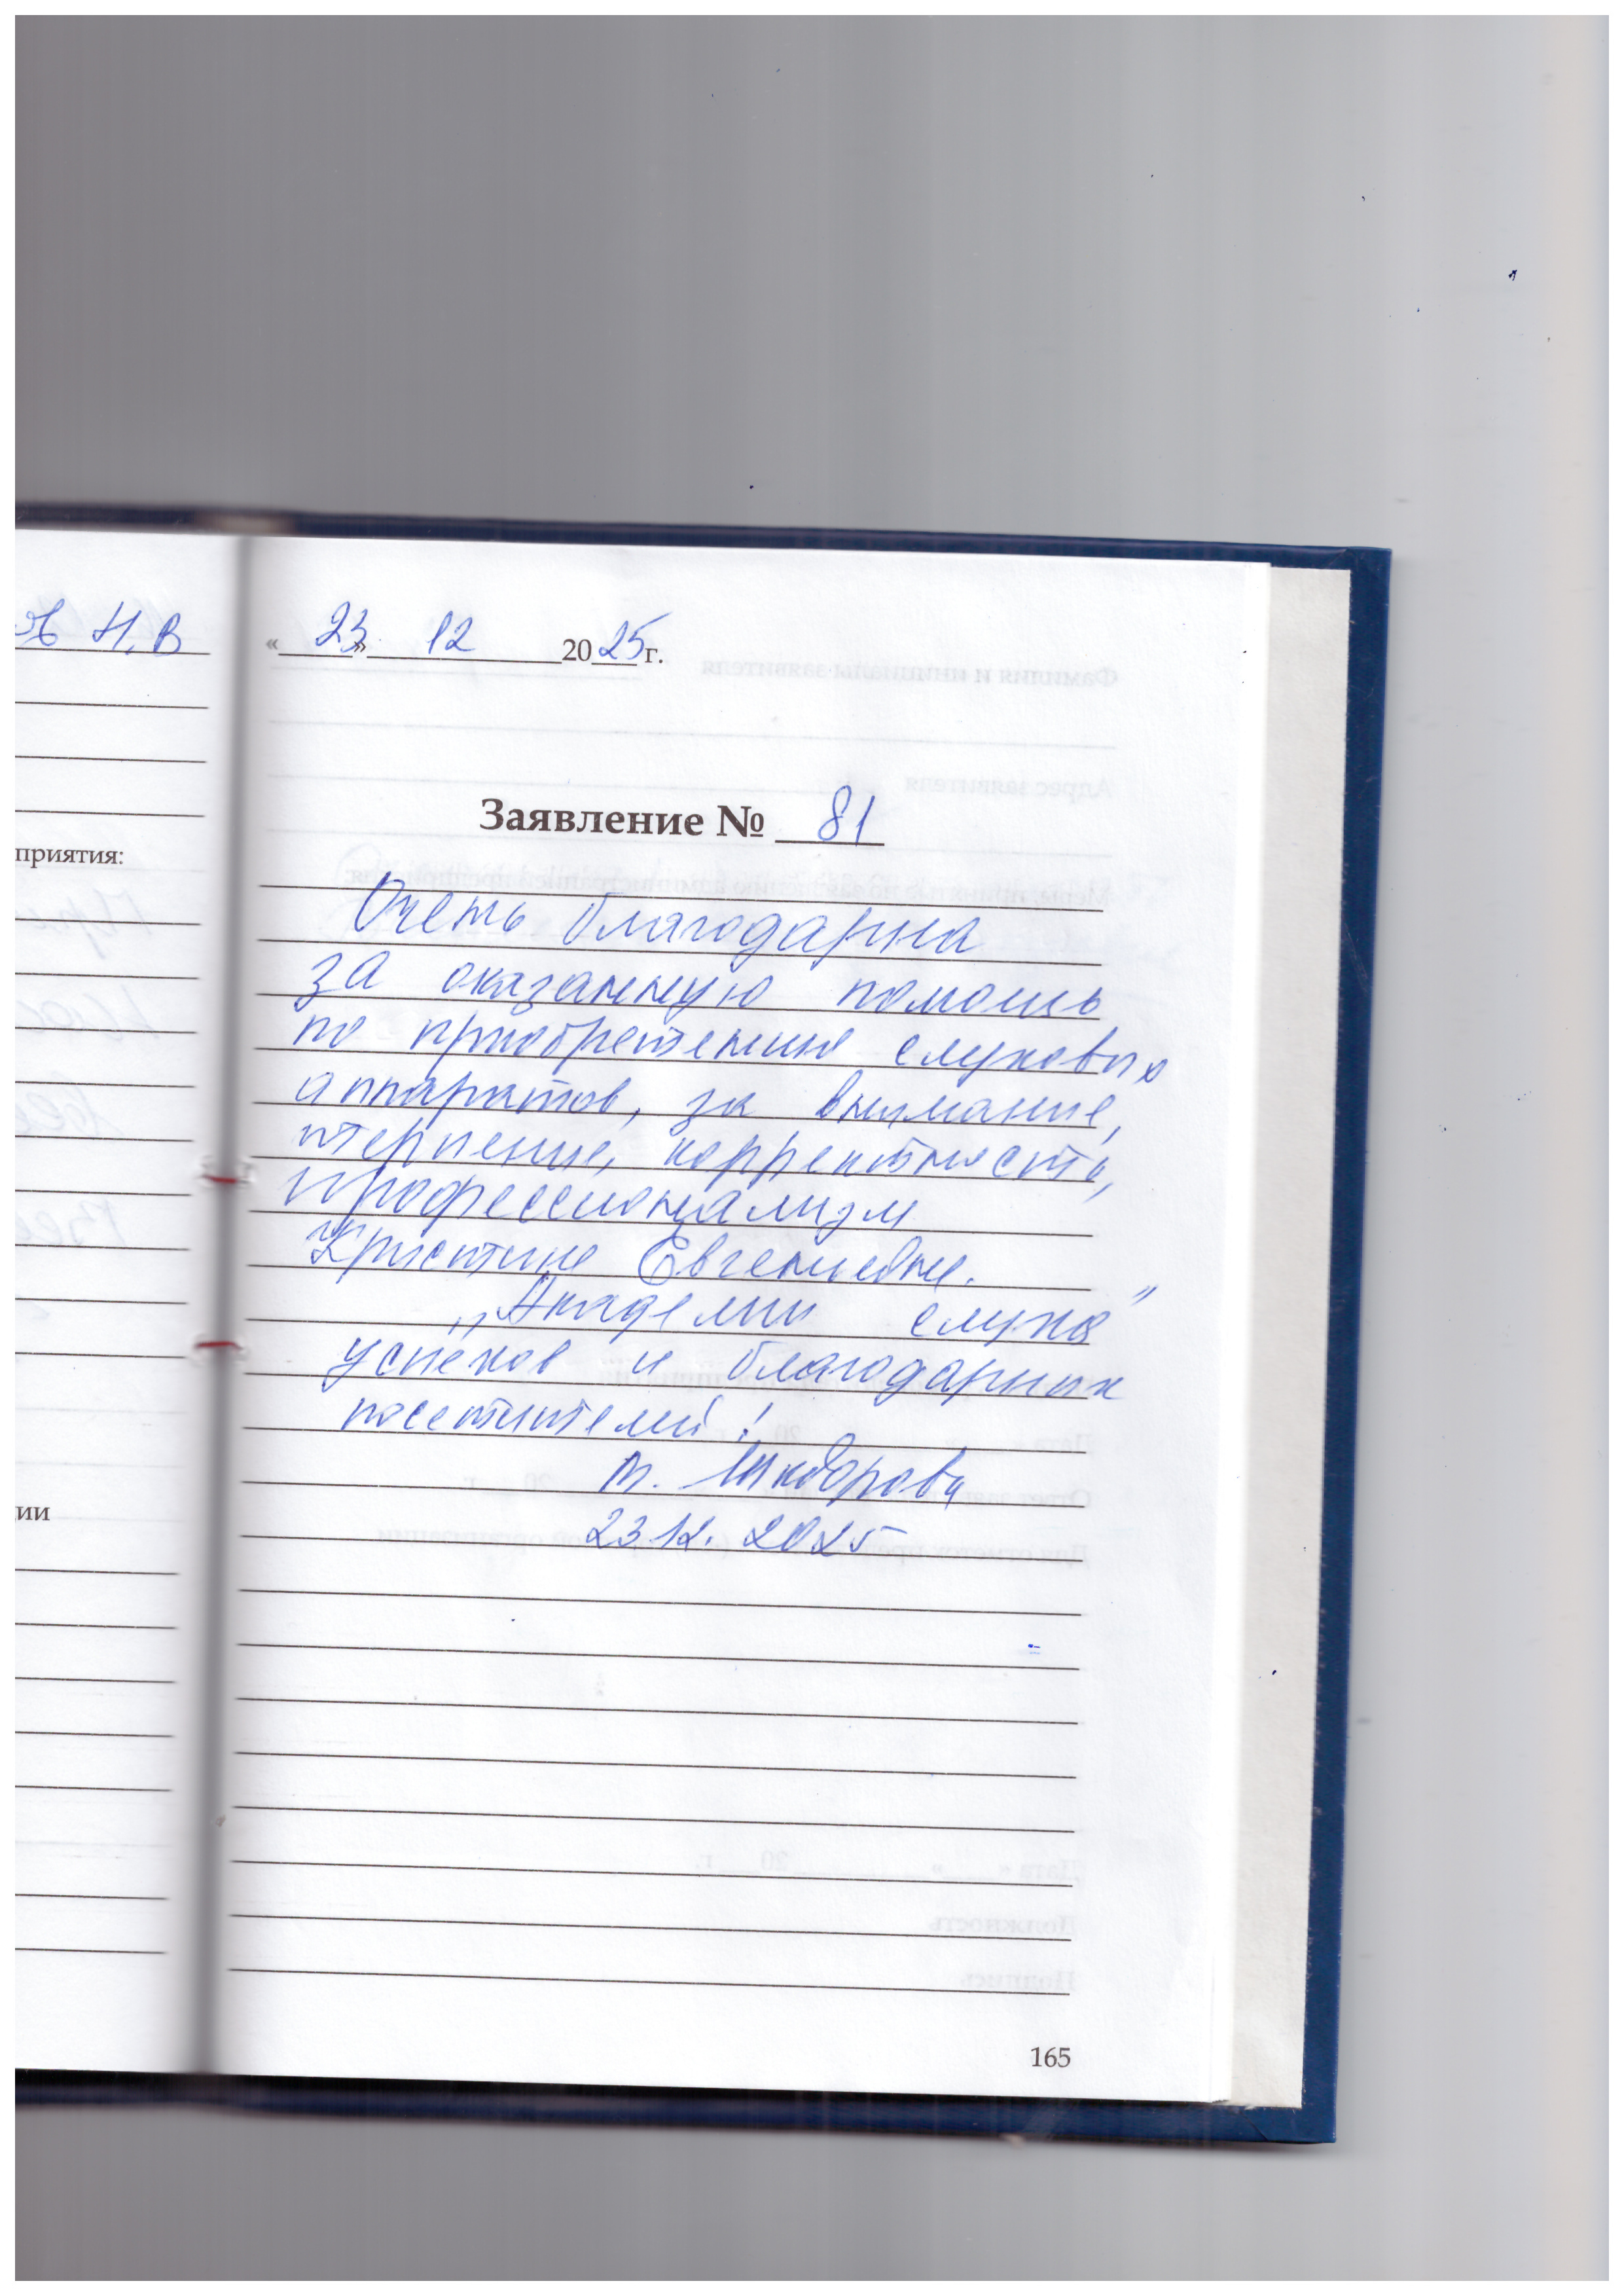 Н.В
приятия:
ии
« 23 » 12 2025 г.
Заявление № 81
Очень благодарна
за оказанную помощь
по приобретению слуховых
аппаратов, за внимание,
терпение, корректность,
профессионализм
Кристине Евгеньевне.
„Академии слуха"
успехов и благодарных
посетителей!
23.12.2025
165